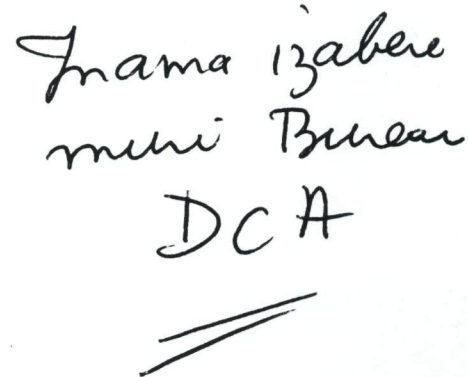 Inama izabere
muri Bureau
DCA